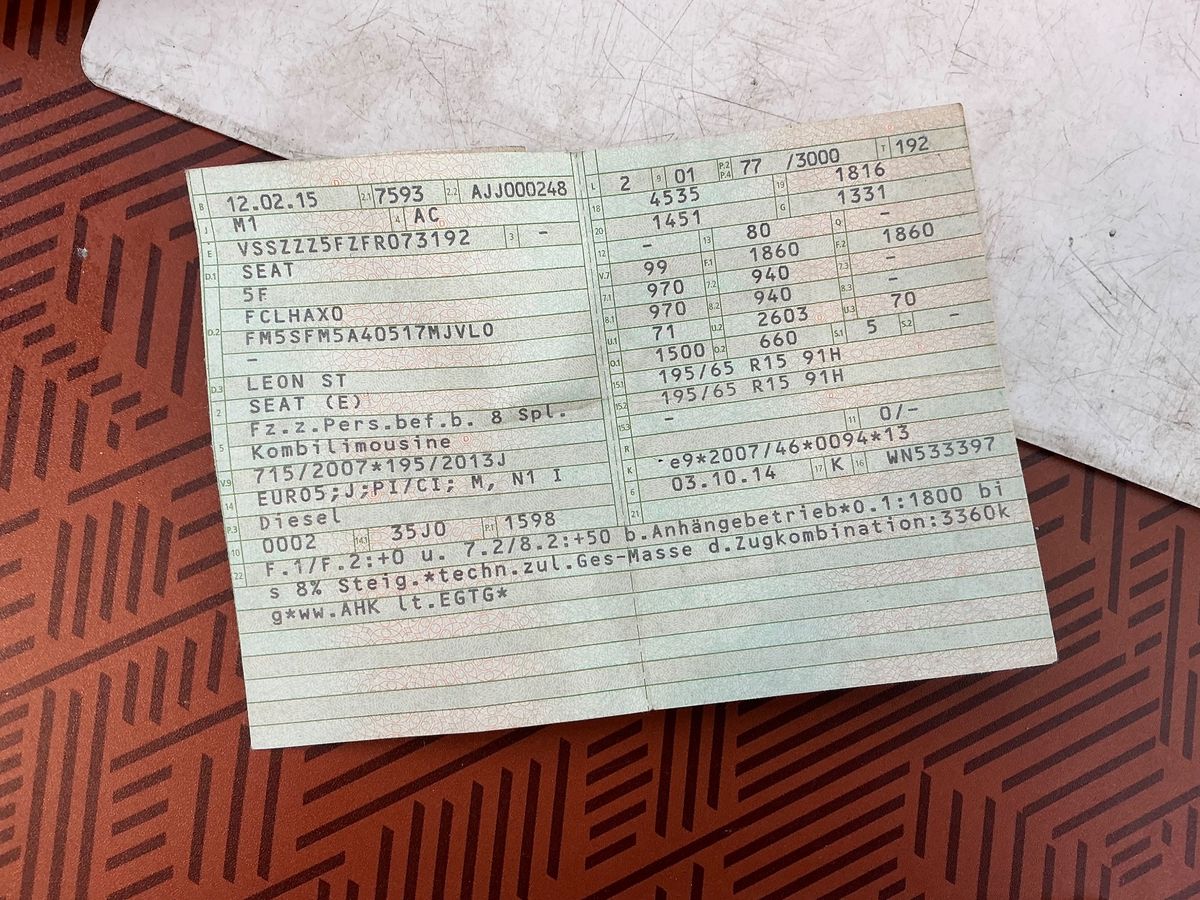 B 12.02.15 2.1 7593 2.2 AJJ000248
J M1 4 AC
E VSSZZZ5FZFR073192 3 -
D.1 SEAT
5F
D.2 FCLHAX0
FM5SFM5A40517MJVL0
-
D.3 LEON ST
2 SEAT (E)
5 Fz.z.Pers.bef.b. 8 Spl.
Kombilimousine
V.9 715/2007*195/2013J
14 EURO5;J;PI/CI; M, N1 I
P.3 Diesel
10 0002 14.1 35J0 P.1 1598
L 2 9 01 P.2 P.4 77 /3000 T 192
18 4535 19 1816
20 1451 G 1331
12 - 13 80 Q -
V.7 99 F.1 1860 F.2 1860
7.1 970 7.2 940 7.3 -
8.1 970 8.2 940 8.3 -
U.1 71 U.2 2603 U.3 70
O.1 1500 O.2 660 S.1 5 S.2 -
15.1 195/65 R15 91H
15.2 195/65 R15 91H
15.3 -
R 11 0/-
K e9*2007/46*0094*13
6 03.10.14 17 K 16 WN533397
21
22 F.1/F.2:+0 u. 7.2/8.2:+50 b.Anhängebetrieb*0.1:1800 bi
s 8% Steig.*techn.zul.Ges-Masse d.Zugkombination:3360k
g*ww.AHK lt.EGTG*